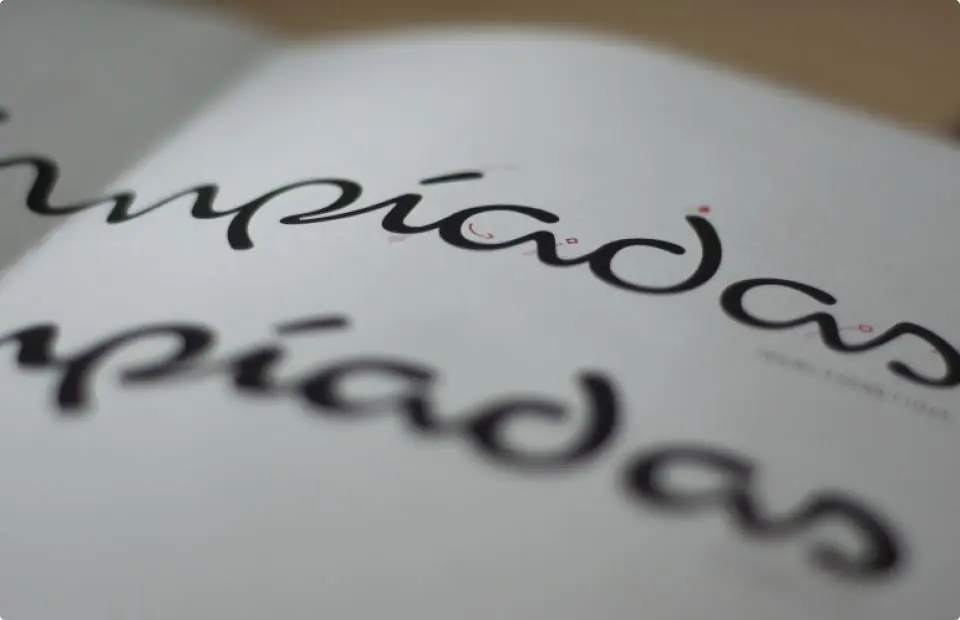 mpíadas
píadas